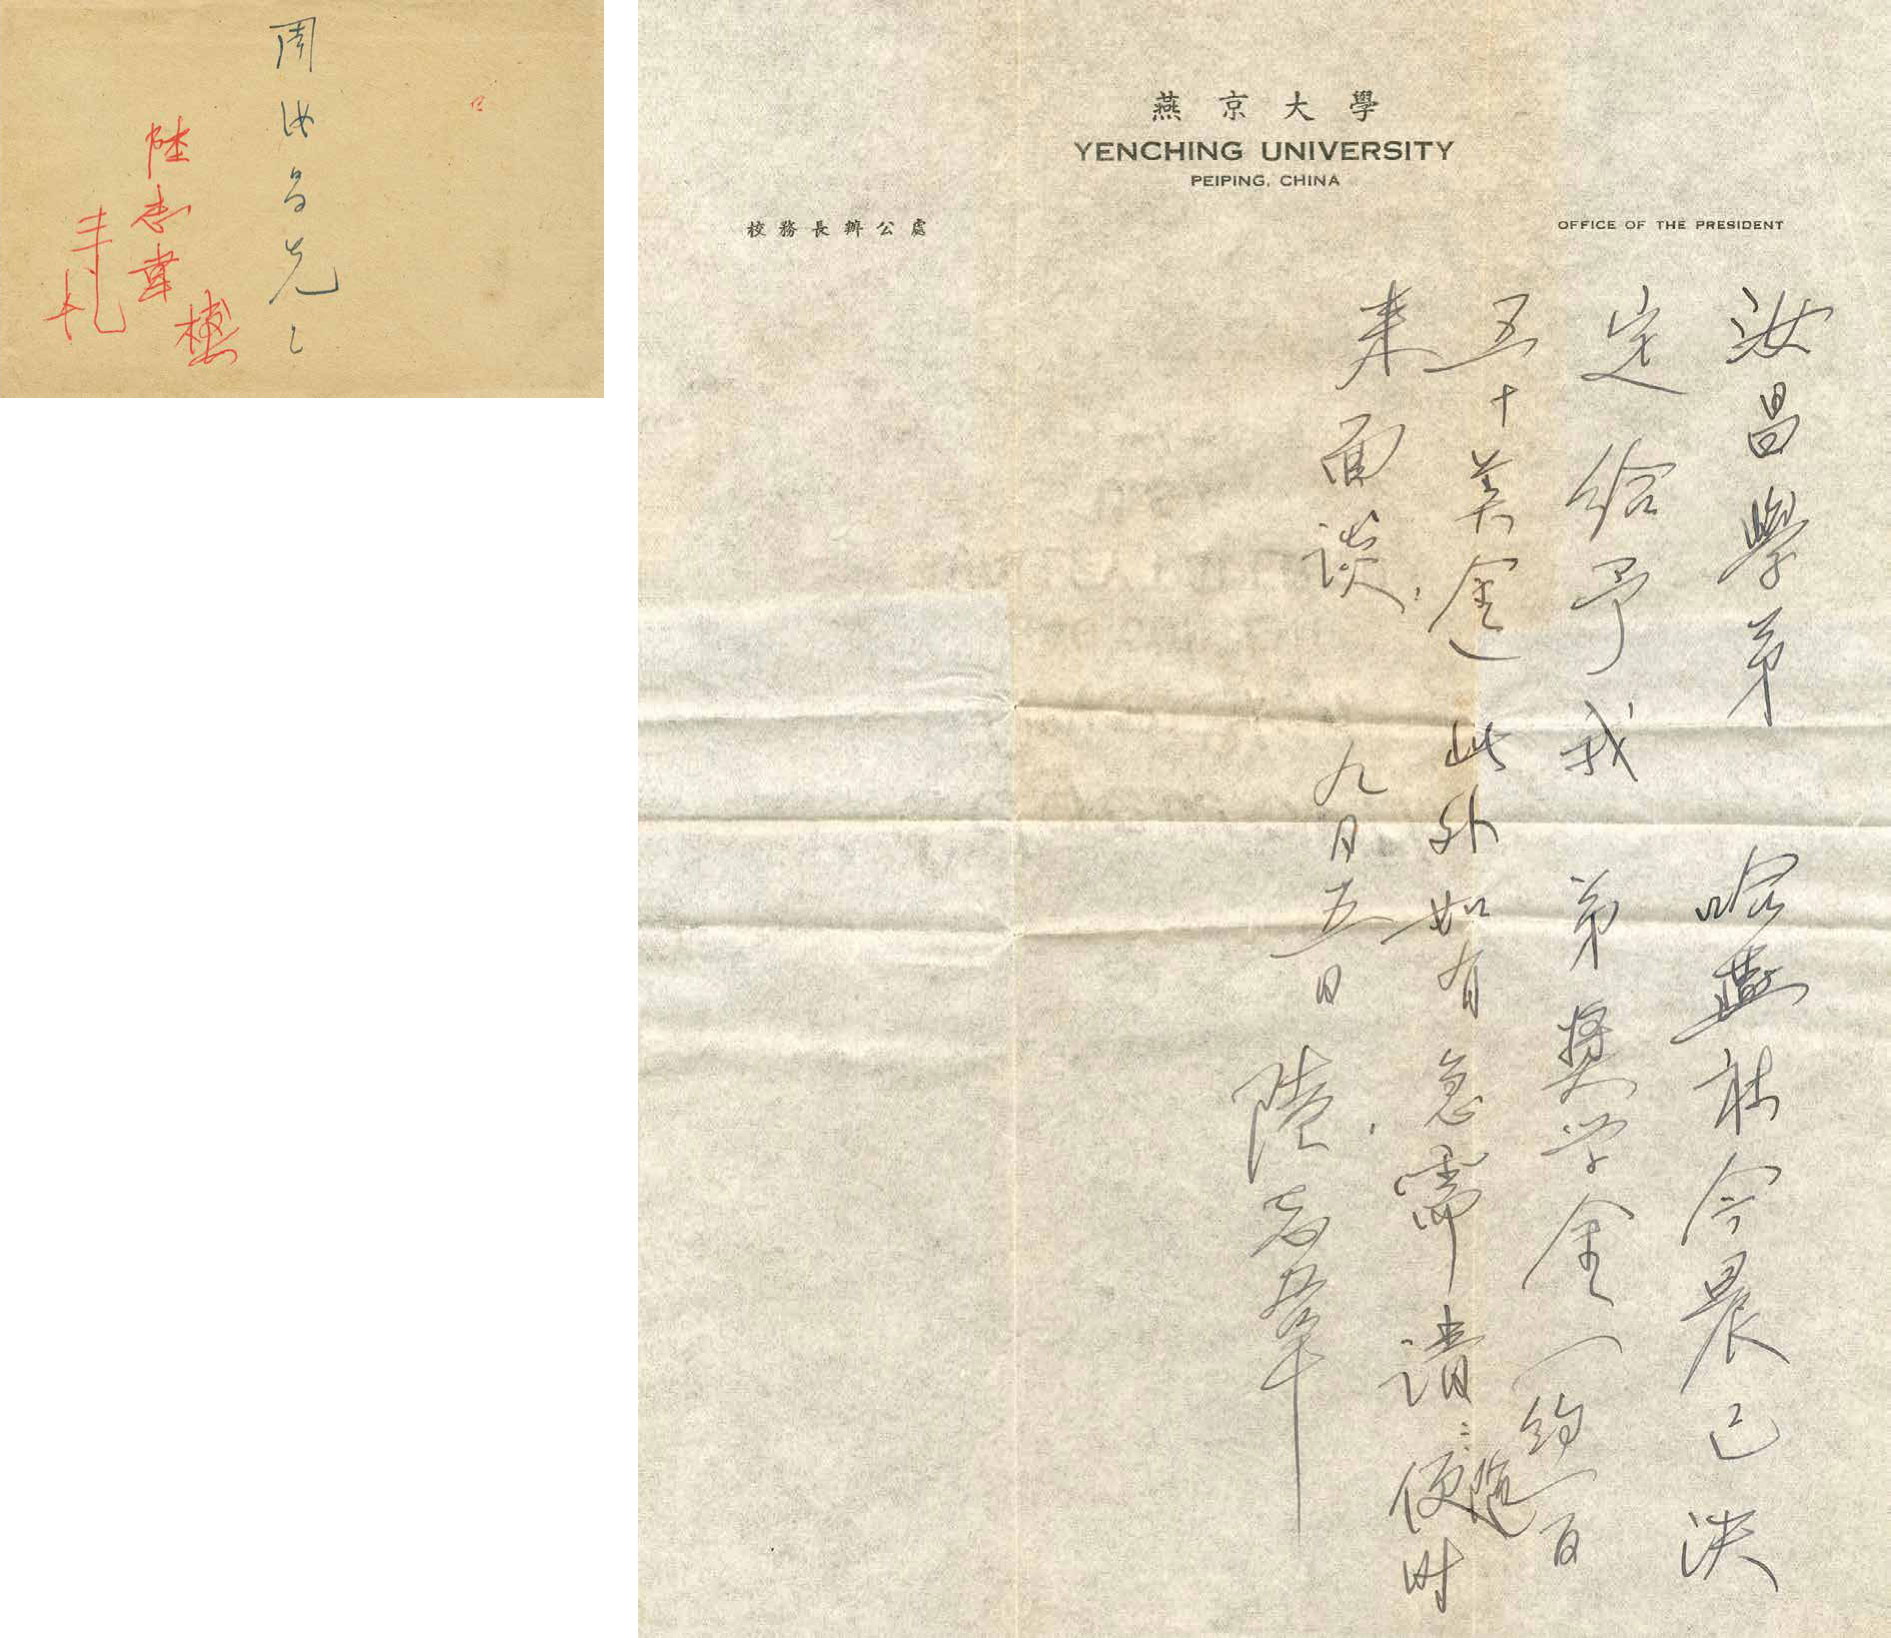 周汝昌先生
陸志韋
手札
燕京大學
YENCHING UNIVERSITY
PEIPING, CHINA
校務長辦公處
OFFICE OF THE PRESIDENT
汝昌學弟 哈燕社今晨已決
定給予我 弟奬学金(約一百
五十美金)此外如有急需請隨便时
来面談.
九月五日 陸志韋